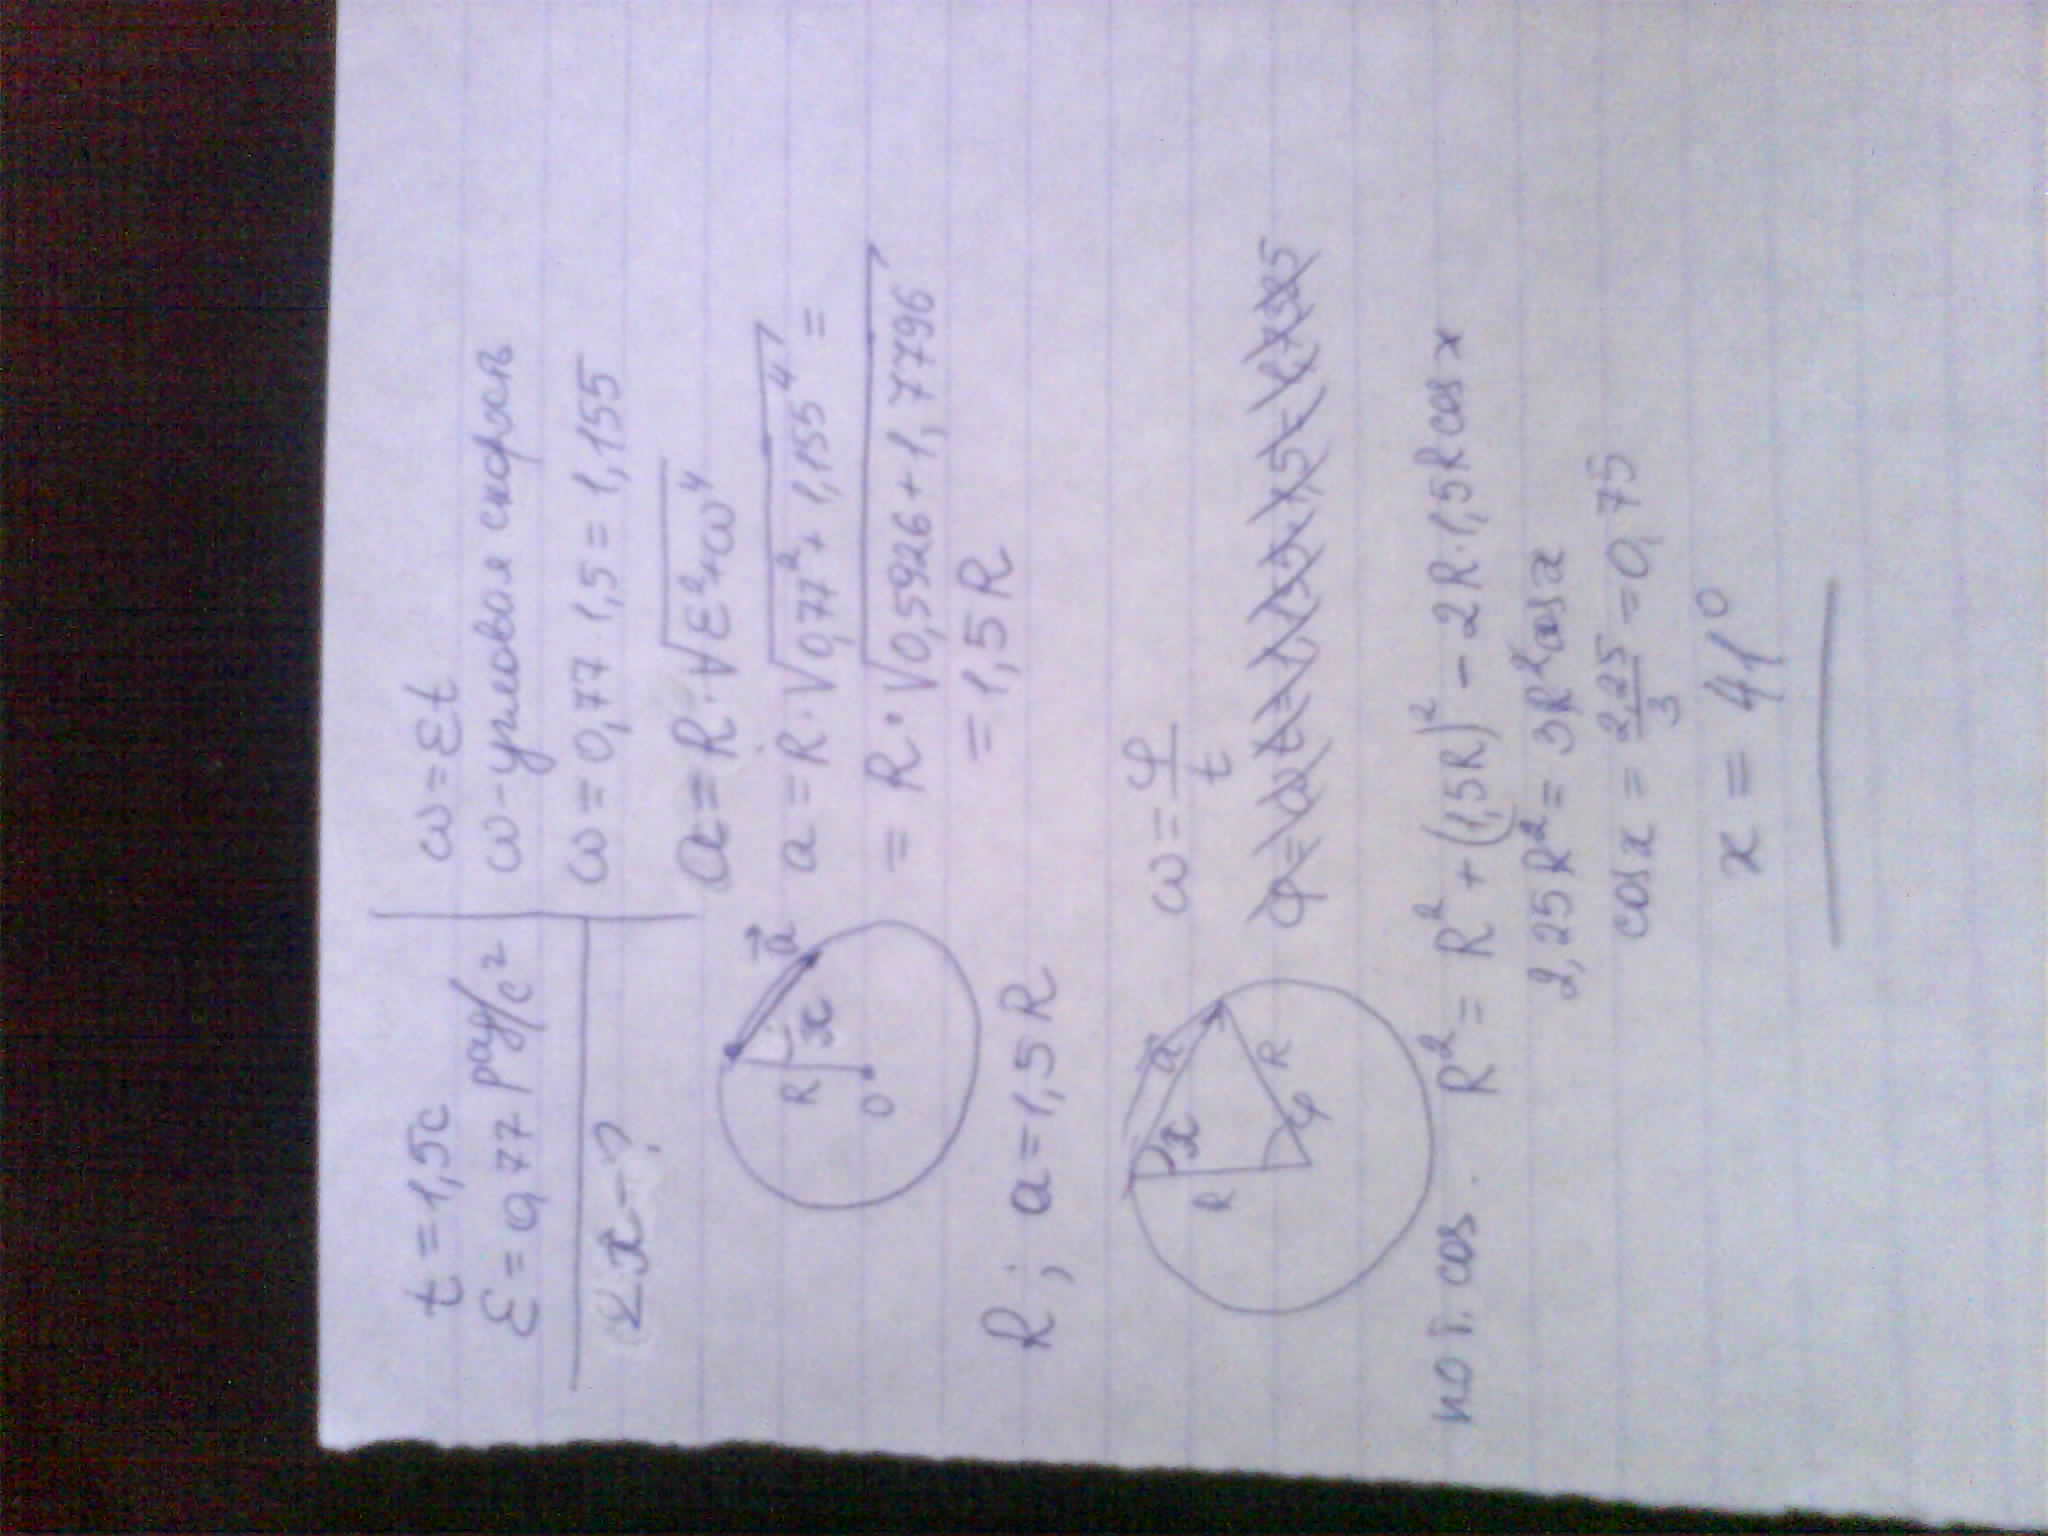 t = 1,5c
ε = 0,77 рад/c²
∠x - ?
ω = εt
ω - угловая скорость
ω = 0,77 · 1,5 = 1,155
a = R · √ε² + ω⁴
a = R · √0,77² + 1,155⁴ =
= R · √0,5926 + 1,7796
= 1,5R
a
R
x
O
R ; a = 1,5R
a
R
x
R
φ
ω = φ/t
по т. cos. R² = R² + (1,5R)² - 2R · 1,5R cos x
2,25R² = 3R² cos x
cos x = 2,25/3 = 0,75
x = 41°